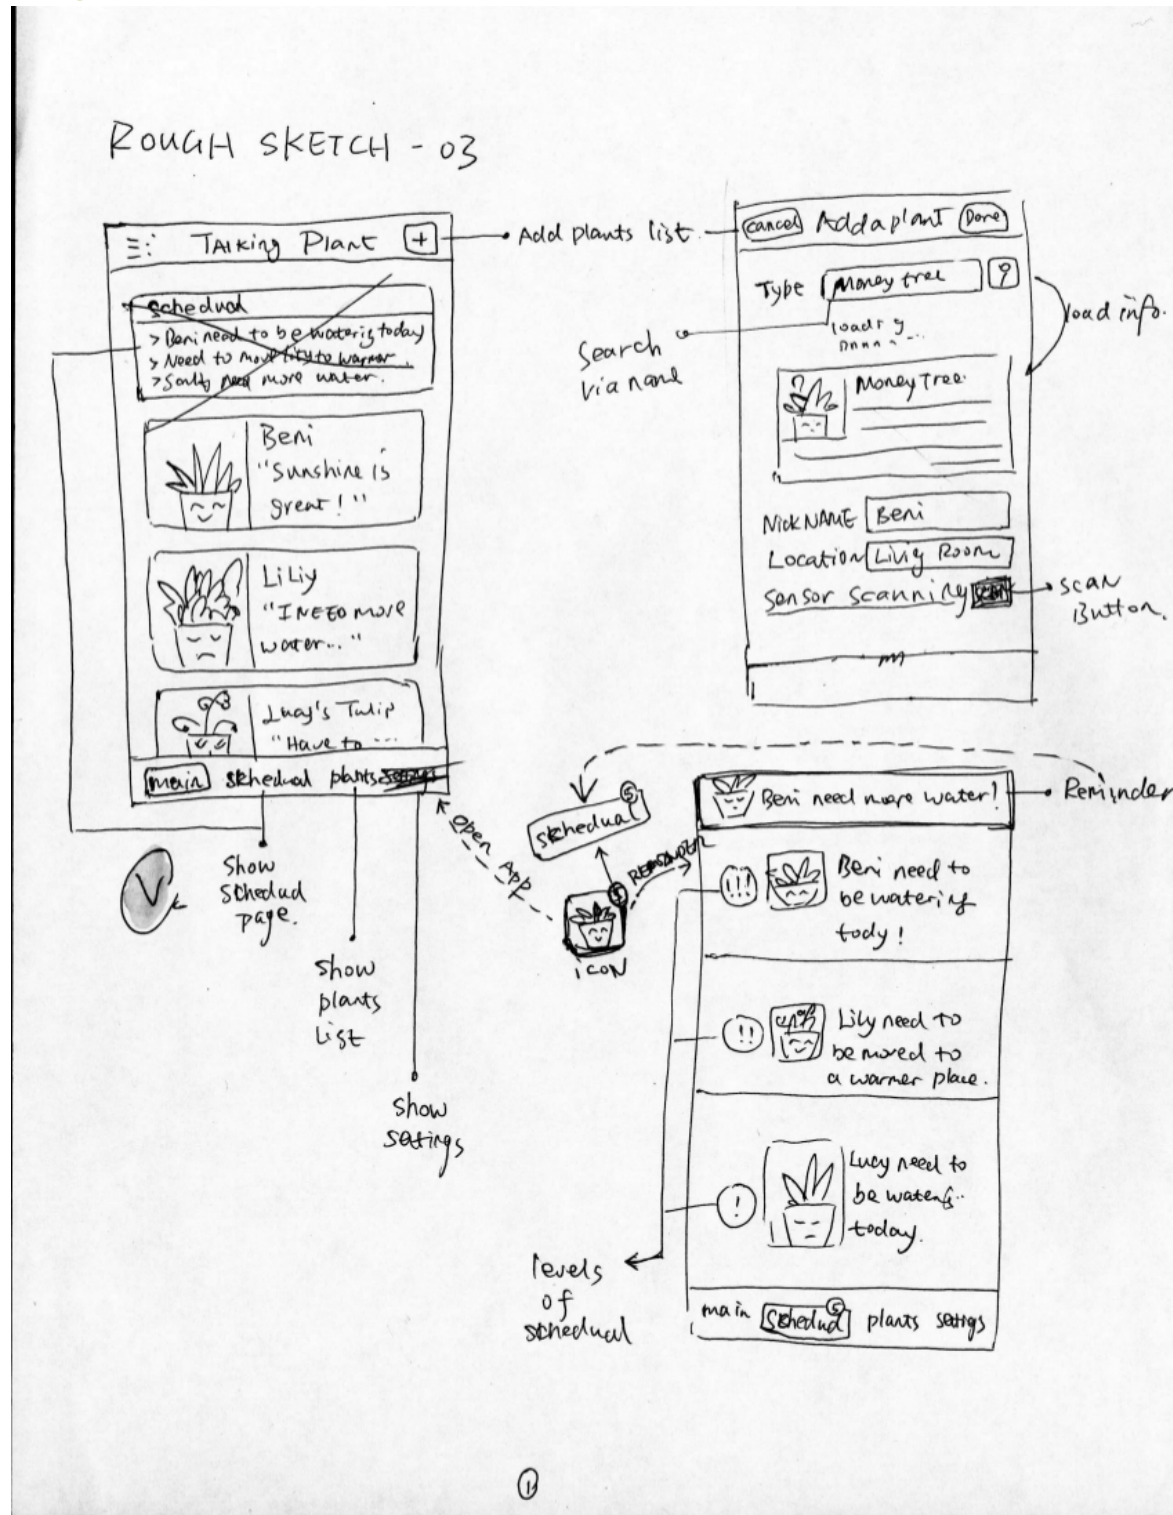 ROUGH SKETCH - 03
TALKING Plant +
schedual
> Beni need to be waterig today
> Need to move lily to warmer.
> Sally need more water.
Beni
"Sunshine is
great! "
LiLiy
"I NEED MORE
water... "
Lucy's Tulip
"Have to ...
main schedual plants
Show
schedual
page.
show
plants
List
show
settings
V
Add plants list.
cancel Add a plant Done
Type Money tree
loadig
load info.
Search
via name
Money Tree.
NickNAME Beni
Location Livig Room
Sensor scanning
scan
Button.
5
schedual
open App
REMINDER
5
iCON
Beni need more water!
Reminder
!!! Beni need to
be watering
tody !
!! Lily need to
be moved to
a warmer place.
! Lucy need to
be waterig..
today.
levels
of
schedual
5
main schedual plants settigs
1